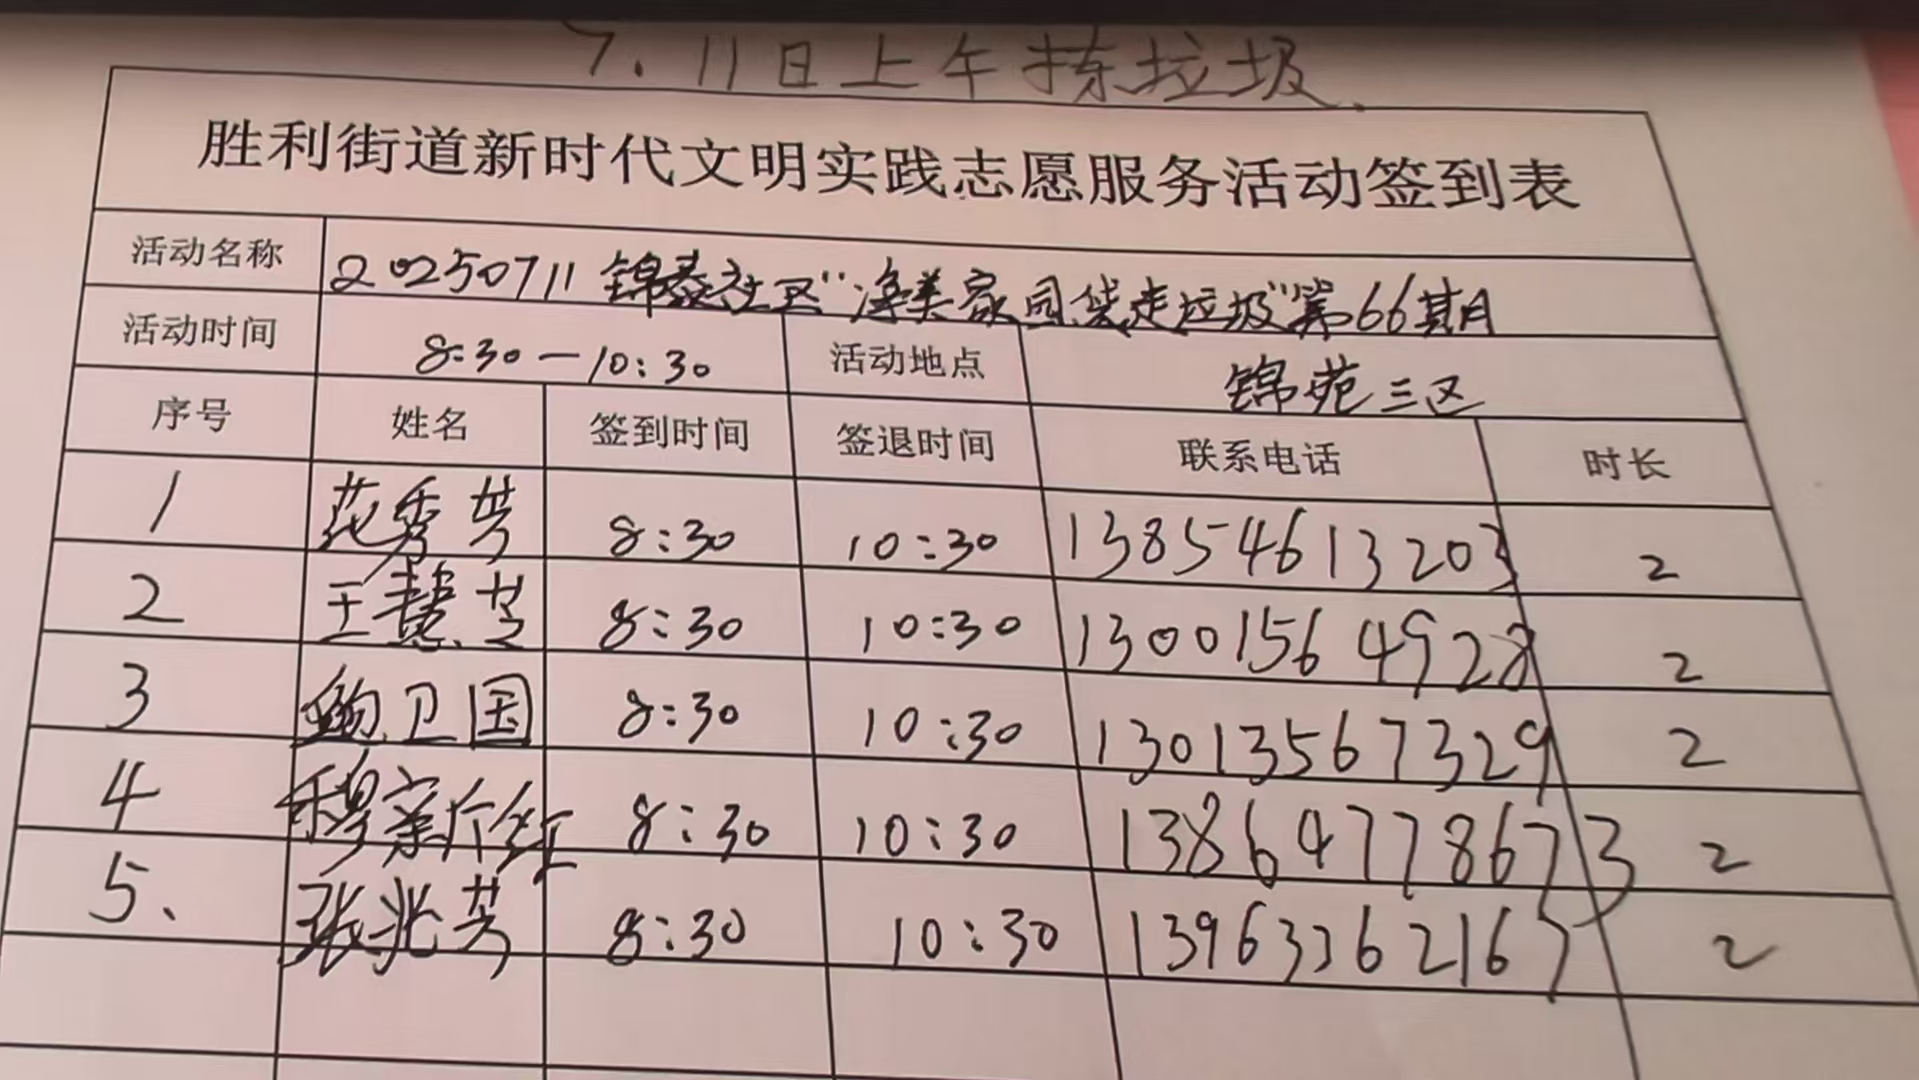 7.11日上午拣垃圾.
胜利街道新时代文明实践志愿服务活动签到表
活动名称 20250711锦泰社区“净美家园袋走垃圾”第66期
活动时间 8:30—10:30 活动地点 锦苑三区
序号 姓名 签到时间 签退时间 联系电话 时长
1 范秀芳 8:30 10:30 13854613203 2
2 王慧芝 8:30 10:30 13001564928 2
3 鲍卫国 8:30 10:30 13013567329 2
4 8:30 10:30 13864778673 2
5、 张兆芳 8:30 10:30 2